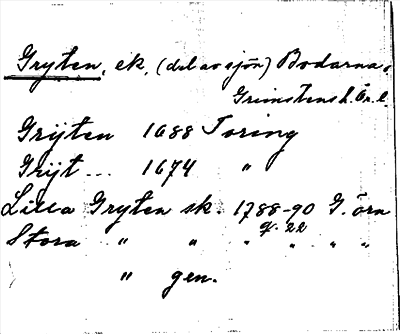 Gryten, sk, (del av sjön) Bodarna,
Grimstens h. Ör. l.
Grÿten 1688 Toring
Grÿt... 1674 "
Lilla Gryten sk. 1788-90 G. örn
q. 22
Stora " " " " " "
" gen.